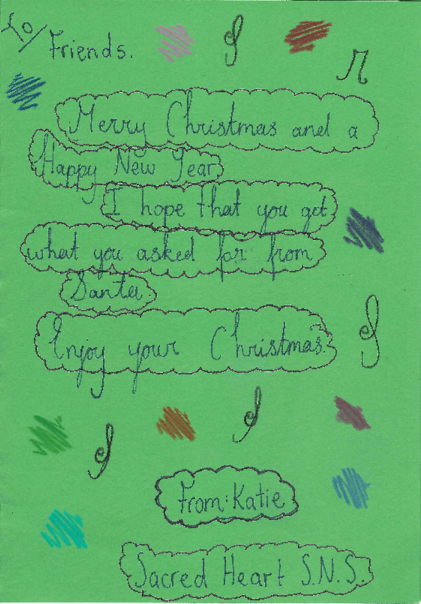 To/ Friends.
Merry Christmas and a
Happy New Year
I hope that you get
what you asked for from
Santa.
Enjoy your Christmas.
From: Katie
Sacred Heart S.N.S.